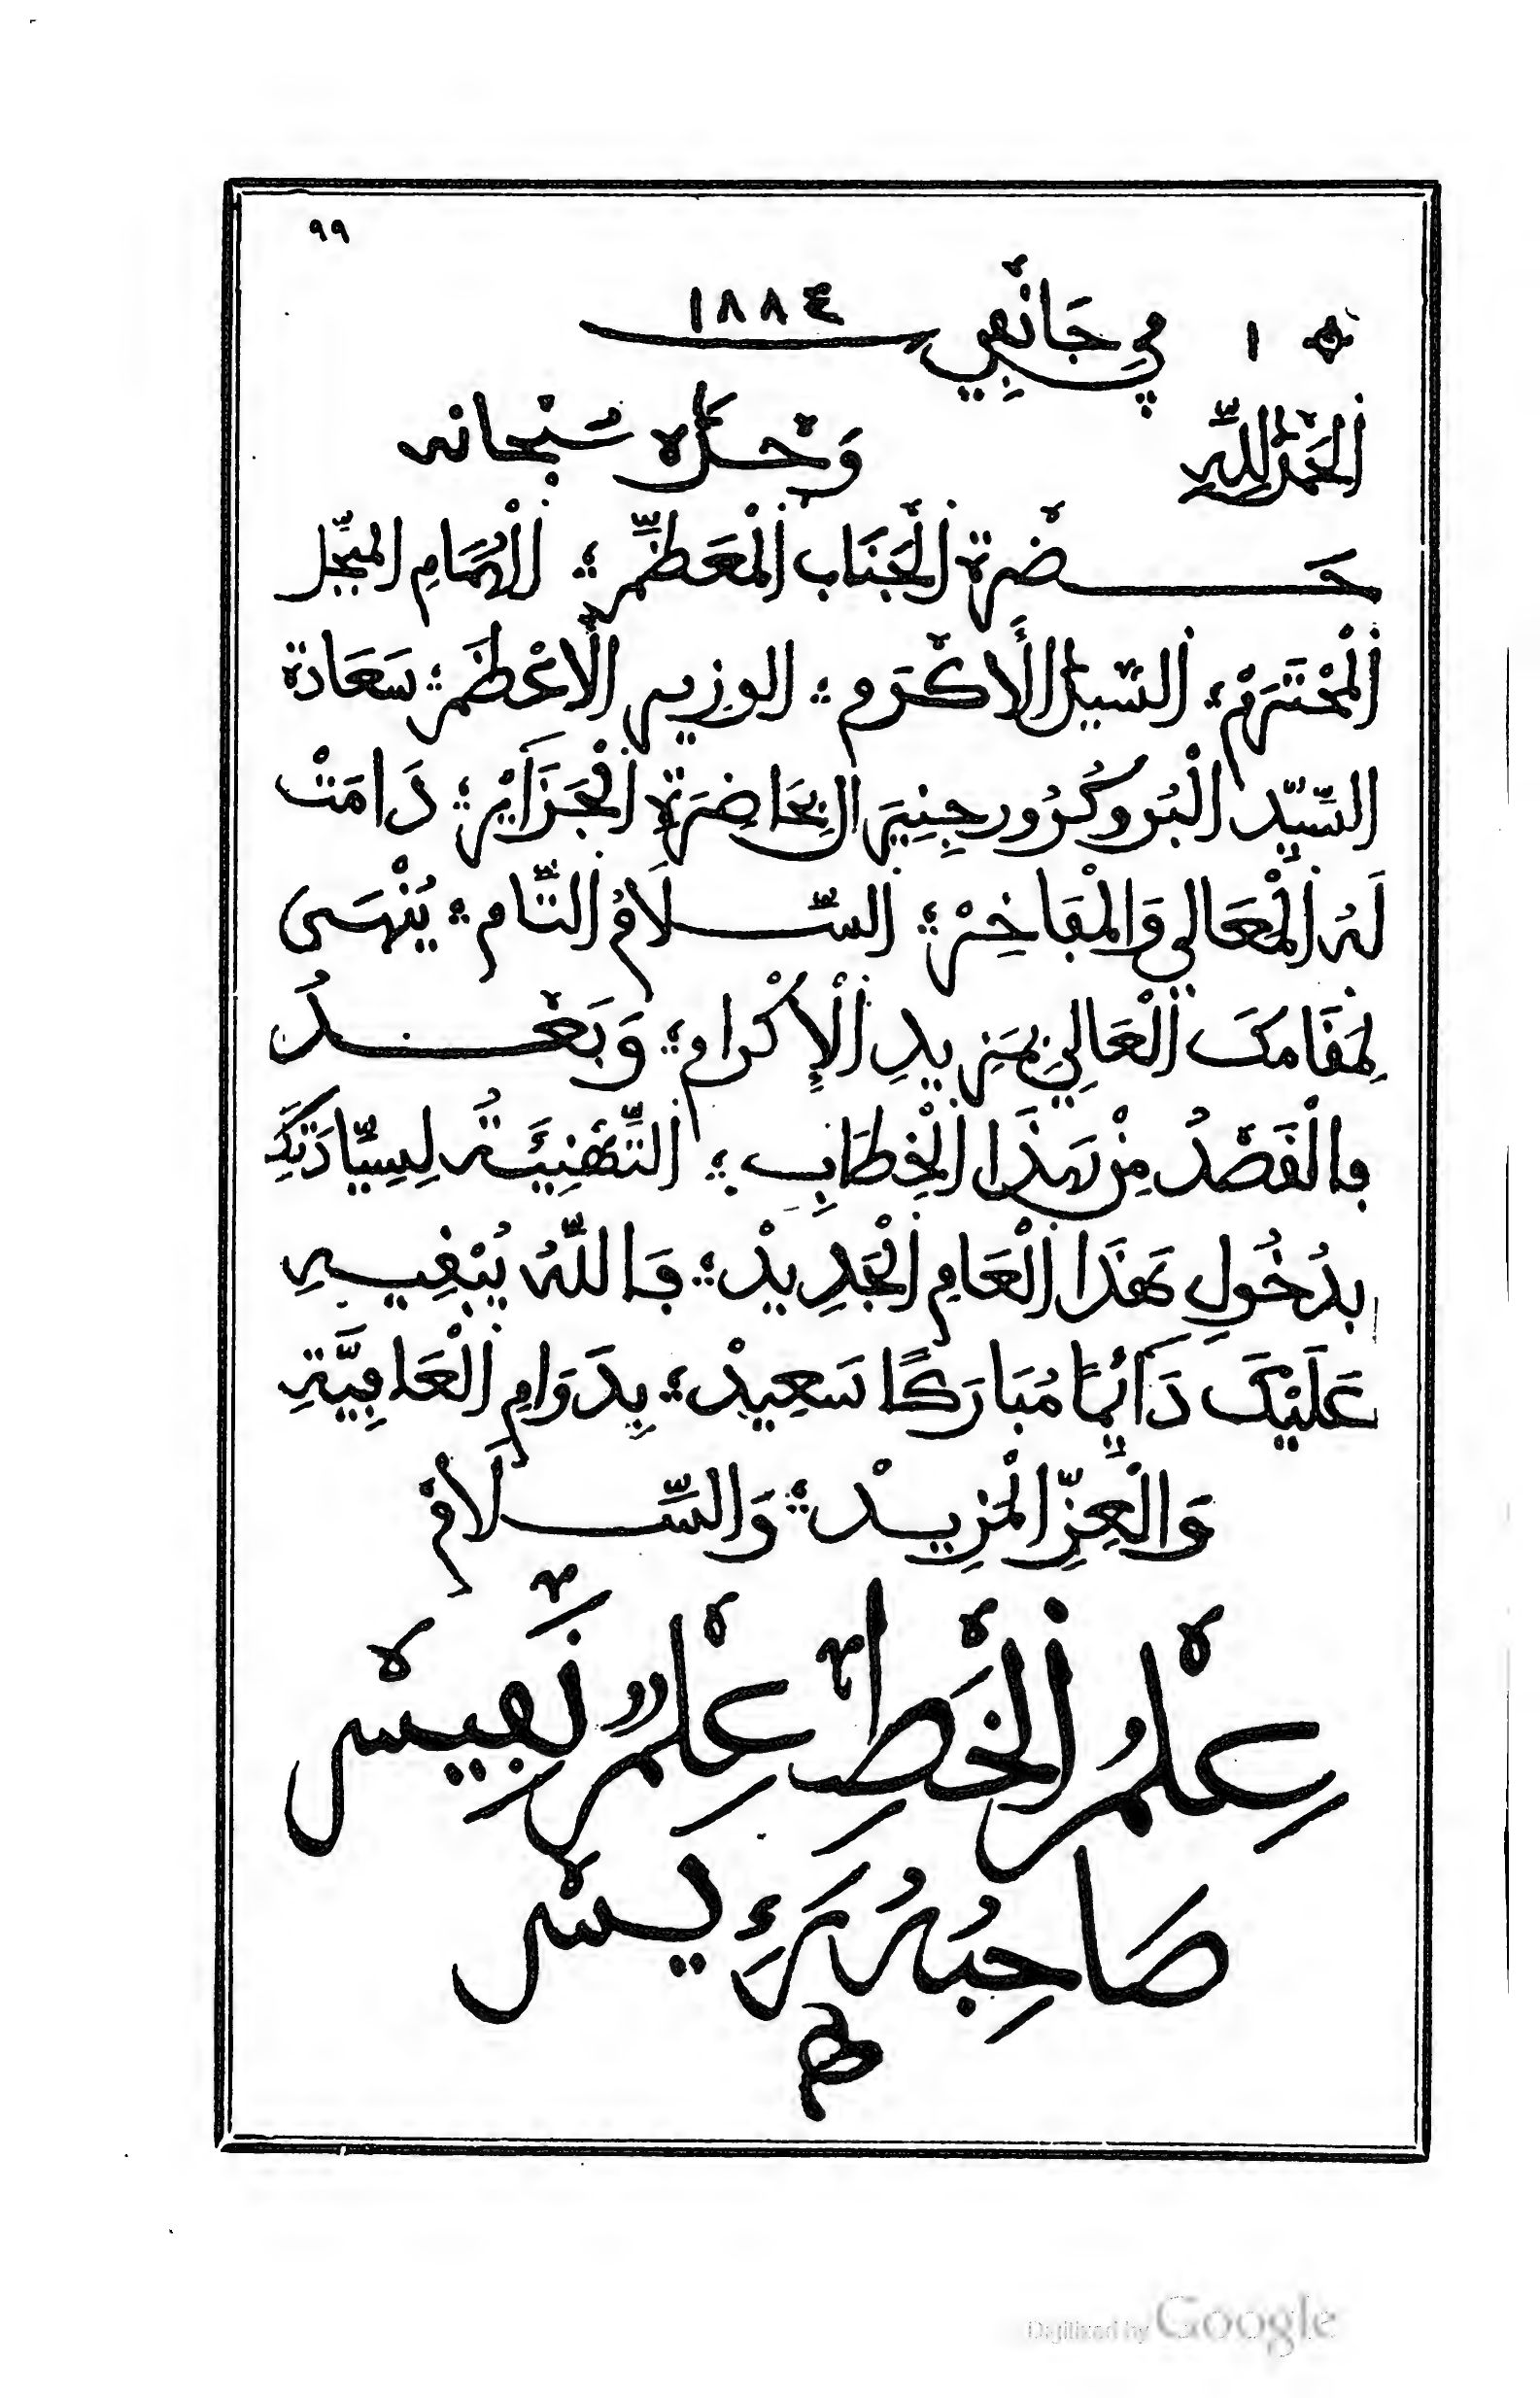 ٩٩
١ في جَانْفِي ١٨٨٤
اَلْحَمْدُ لِلّٰهِ وَحْدَهُ سُبْحَانه
حَضْرَة اَلْجَنَاب اَلْمُعَظَّم؛ اَلْهُمَامِ المبجّل
اَلْمُحْتَرَمْ؛ اَلسّيد اَلْأَكْرَم؛ الوزير اَلْأَعْظَم؛ سَعَادَة
السَّيِّد اَلْبُرُوكُرُور جِنِيرَال بِحَاضِرَةِ اَلْجَزَآئِرْ؛ دَامَتْ
لَهُ اَلْمَعَالِي وَالْمَفَاخِرْ؛ اَلسَّلَامُ اَلتَّام؛ يُنْهَى
لِمَقَامِكَ اَلْعَالِي بِمَزِيدِ اَلْإِكْرَام؛ وَبَعْدُ
فالْقَصْدُ مِنْ هَذَا اَلْخِطَابِ؛ اَلتَّهْنِئَةُ لِسِيَّادَتِكَ
بِدُخُولِ هَذَا اَلْعَامِ اَلْجَدِيدْ؛ فَاللّٰهُ يُبْقِيهِ
عَلَيْكَ دَآئِمًا مُبَارَكًا سَعِيدْ؛ بِدَوَامِ اَلْعَافِيَّةِ
وَالْعِزِّ الْمَزِيدْ؛ وَالسَّلَامْ
عِلْمُ اَلْخَطِّ عِلْمٌ نَّفِيسْ
صَاحِبُهُ رَءِيسْ
Digitized by Google